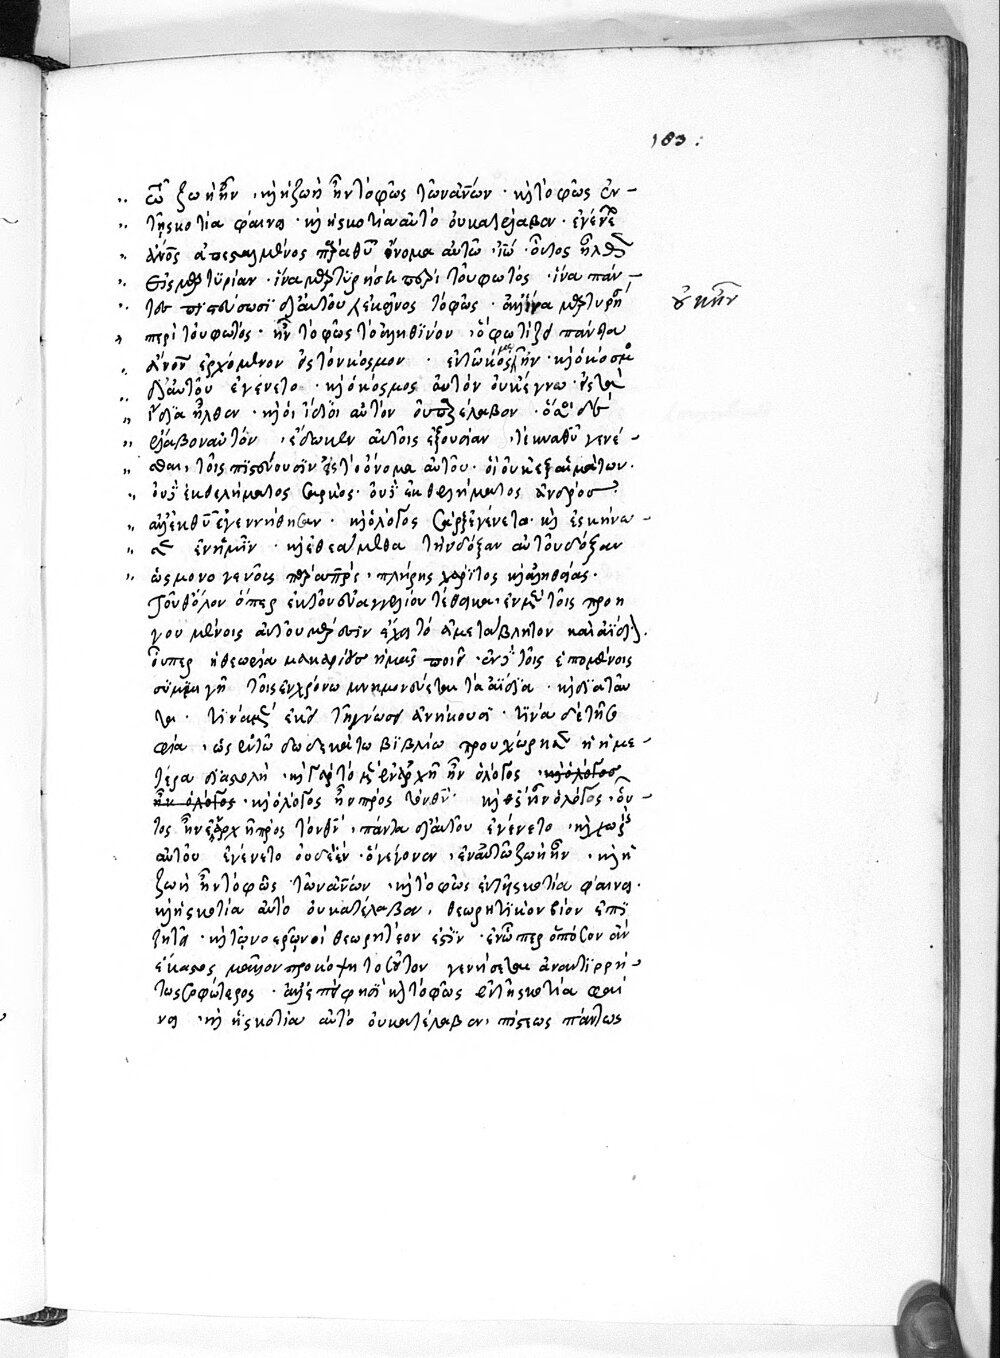 183:
„ ῶ ζωὴ ἦν · κὴ ἡ ζωὴ ἦν τὸ φῶς τῶν ἀνῶν · κὴ τὸ φῶς ἐν –
„ τῆ σκοτία φαίνει · κὴ ἡ σκοτία αὐτὸ οὐ κατέλαβεν · ἐγένετο
„ ἄνος ἀπεσταλμένος παρὰ θῦ ὄνομα αὐτῶ ἰῶ · οὗτος ἦλθεν
„ εἰς μαρτυρίαν · ἵνα μαρτυρήση περὶ τοῦ φωτὸς · ἵνα πάν –
„ τες πιστεύσωσι δι' αὐτοῦ οὐκ ἐκεῖνος τὸ φῶς · ἀλλ' ἵνα μαρτυρήση
οὐκ ἦν
„ περὶ τοῦ φωτός · ἦν τὸ φῶς τὸ ἀληθινόν · ὃ φωτίζει πάντα
„ ἄνον ἐρχόμενον εἰς τὸν κόσμον · ἐν τῶ κόσμω ἦν · κὴ ὁ κόσμος
„ δι' αὐτοῦ ἐγένετο · κὴ ὁ κόσμος αὐτὸν οὐκ ἔγνω · εἰς τὰ
„ ἴδια ἦλθεν · κὴ οἱ ἴδιοι αὐτὸν οὐ παρέλαβον · ὅσοι δὲ
„ ἔλαβον αὐτὸν · ἔδωκεν αὐτοῖς ἐξουσίαν · τέκνα θῦ γενέ –
„ σθαι · τοῖς πιστεύουσιν εἰς τὸ ὄνομα αὐτοῦ · οἳ οὐκ ἐξ αἱμάτων ·
„ οὐδὲ ἐκ θελήματος σαρκὸς · οὐδὲ ἐκ θελήματος ἀνδρὸς ·
„ ἀλλ' ἐκ θῦ ἐγεννήθησαν · κὴ ὁ λόγος σὰρξ ἐγένετο · κὴ ἐσκήνω –
„ σεν ἐν ἡμῖν · κὴ ἐθεασάμεθα τὴν δόξαν αὐτοῦ δόξαν
„ ὡς μονογενοῦς παρὰ πρς · πλήρης χάριτος κὴ ἀληθείας ·
τοῦθ' ὅλον ὅπερ ἐκ τοῦ εὐαγγελίου τέθεικα · ἐν μὲν τοῖς προη
γουμένοις αὐτοῦ μέρεσιν ἔχει τὸ ἀμετάβλητον καὶ ἀΐδιον ·
οὗπερ ἡ θεωρία μακαρίους ἡμᾶς ποιεῖ · ἐν δὲ τοῖς ἑπομένοις
συμμιγῆ τοῖς ἐν χρόνω μνημονεύεται τὰ ἀΐδια · κὴ διὰ ταῦ
τα · τινὰ μὲν ἐκεῖ τῆ γνώσει ἀνήκουσι · τινὰ δὲ τῆ σο
φία · ὡς ἐν τῶ δωδεκάτω βιβλίω προυχώρησεν ἡ ἡμε –
τέρα διαστολὴ · κὴ γὰρ τὸ μὲν ἐν ἀρχῆ ἦν ὁ λόγος · κὴ ὁ λόγος
ἦν ὁ λόγος · κὴ ὁ λόγος ἦν πρὸς τὸν θν · κὴ θς ἦν ὁ λόγος · οὗ –
τος ἦν ἐν ἀρχῆ πρὸς τὸν θν · πάντα δι' αὐτοῦ ἐγένετο · κὴ χωρὶς
αὐτοῦ ἐγένετο οὐδὲ ἓν · ὃ γέγονεν · ἐν αὐτῶ ζωὴ ἦν · κὴ ἡ
ζωὴ ἦν τὸ φῶς τῶν ἀνῶν · κὴ τὸ φῶς ἐν τῆ σκοτία φαίνει ·
κὴ ἡ σκοτία αὐτὸ οὐ κατέλαβεν · θεωρητικὸν βίον ἐπι
ζητεῖ · κὴ τῶ νοερῶ νοῒ θεωρητέον ἐστὶν · ἐν ὧπερ ὁπόσον ἂν
ἕκαστος μᾶλλον προκόψη τοσοῦτον γενήσεται ἀναντιρρή –
τως σοφώτερος · ἀλλ' ἐπεί φησι κὴ τὸ φῶς ἐν τῆ σκοτία φαί
νει · κὴ ἡ σκοτία αὐτὸ οὐ κατέλαβεν · πίστεως πάντως